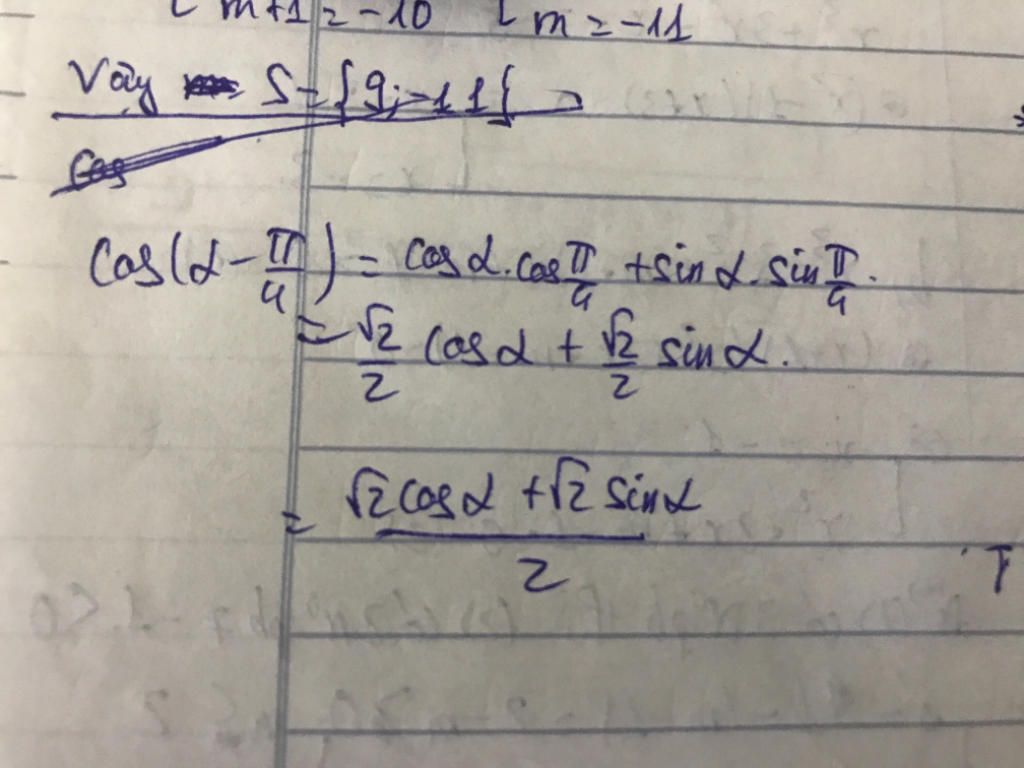 [ m+1=-10 [ m=-11
Vậy S={9;-11}
Cos
Cos(α-π/4) = cosα.cos π/4 +sinα.sin π/4.
= √2/2 cosα + √2/2 sinα.
= (√2cosα +√2 sinα)/2
T